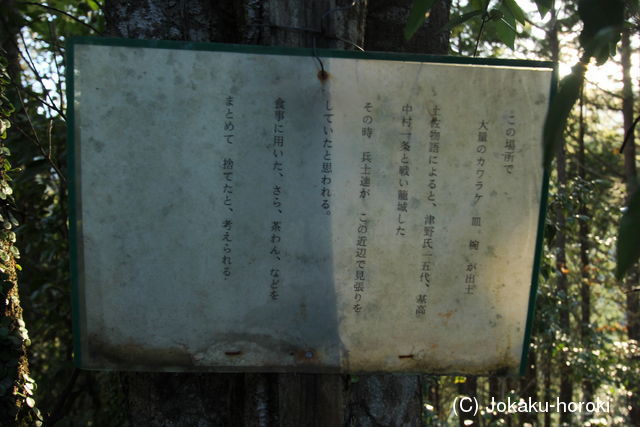 この場所で
大量のカワラケ 皿、椀 が出土
土佐物語によると、津野氏一五代、基高
中村一条と戦い籠城した
その時 兵士達が この近辺で見張りを
していたと思われる。
食事に用いた、さら、茶わん、などを
まとめて 捨てたと、考えられる。
(C) Jokaku-horoki